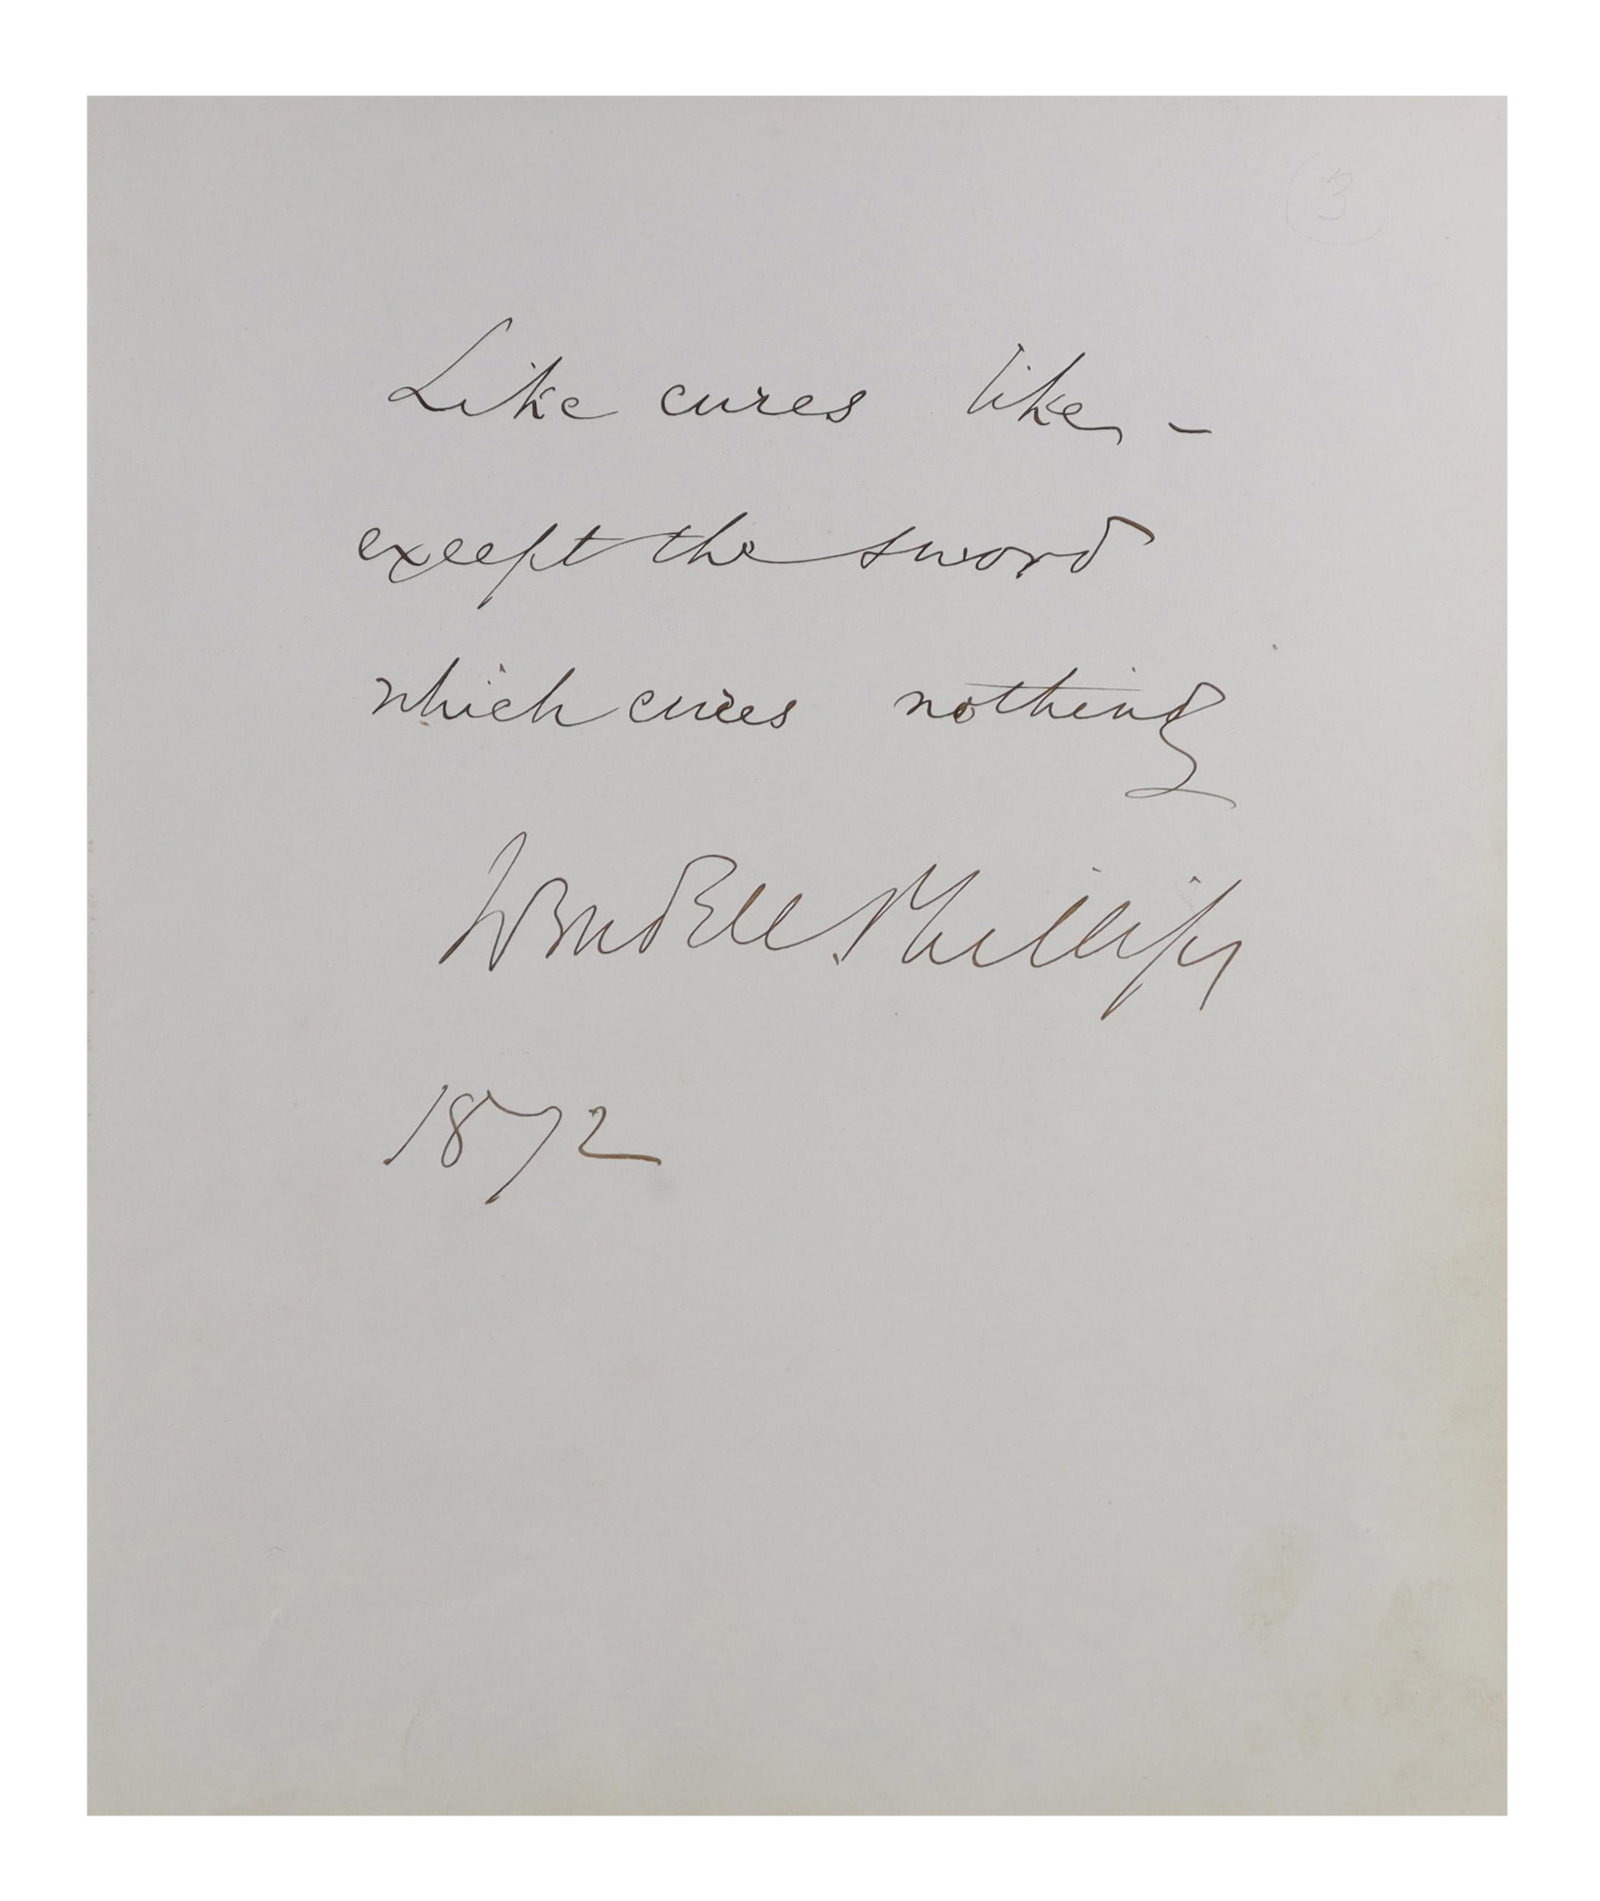 3
Like cures like –
except the sword
which cures nothing
Wendell Phillips
1872